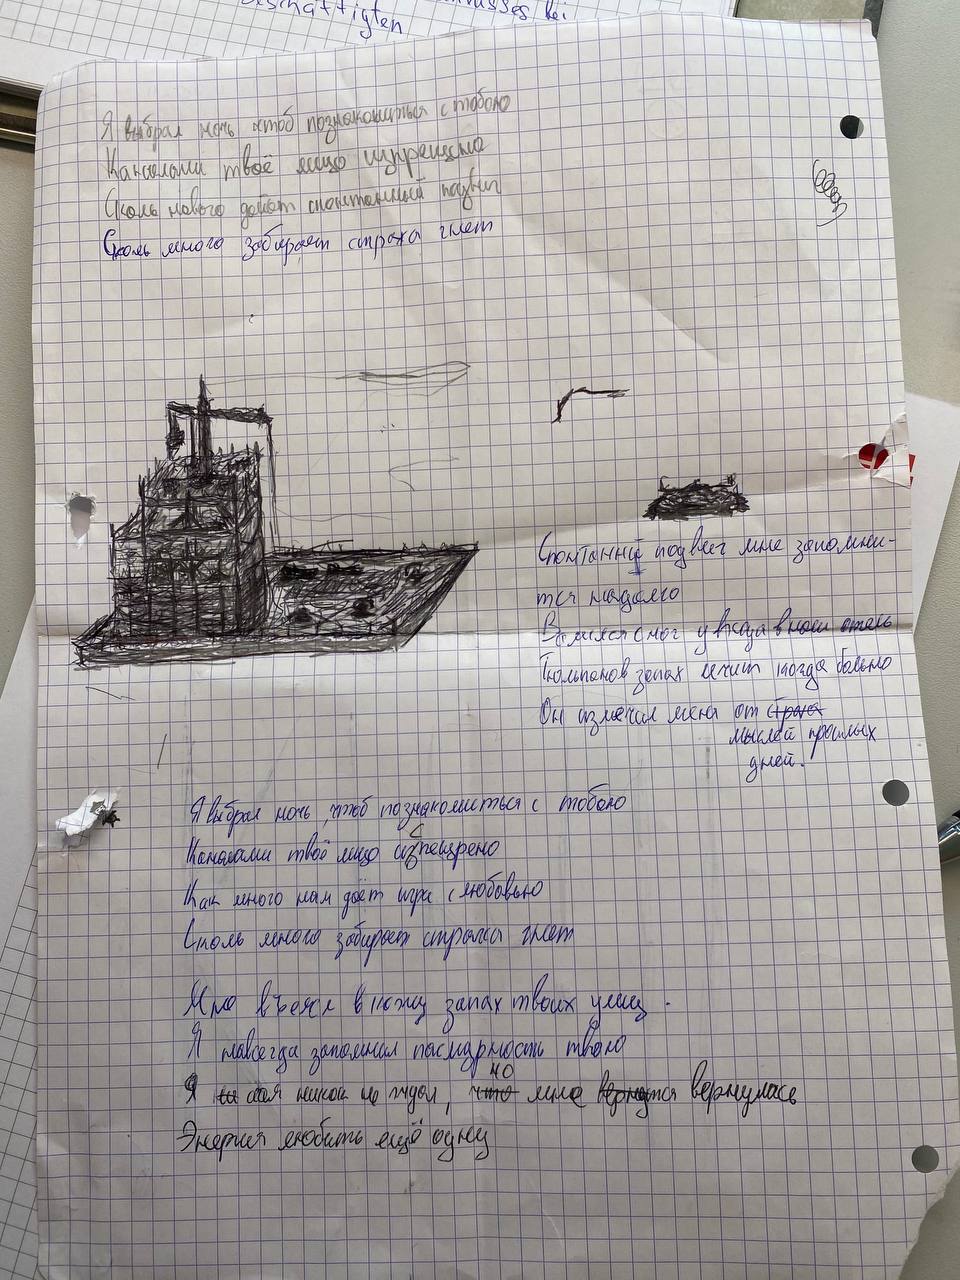 beschäftigten
Я выбрал ночь чтоб познакомиться с тобою
Каналами твоё лицо изпрещрено
Сколь нового даёт спонтанный подвиг
Сколь много забирает страха гнет
Спонтанный подвиг мне запомни-
тся надолго
у входа в наш отель
Тюльпанов запах лечит когда больно
Он излечил меня от страха
мыслей прошлых
дней.
Я выбрал ночь, чтоб познакомиться с тобою
Каналами твоё лицо изспещрено
Как много нам даёт игра с любовью
Сколь много забирает страха гнет
Мне въелся в кожу запах твоих улиц.
Я навсегда запомнил пасмурность твою
но
Я никак не ждал, что мне вернулась
Энергия любить ещё одну